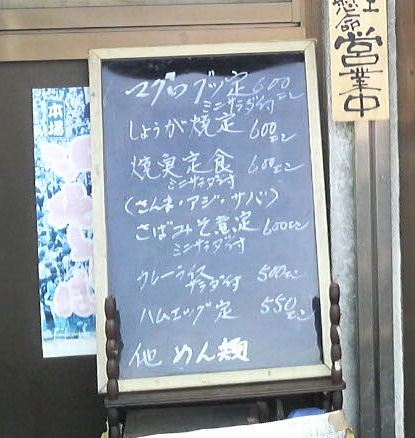 マグロブツ定 600エン
ミニサラダ付
しょうが焼定 600エン
焼魚定食 600エン
ミニサラダ付
(さんま・アジ・サバ)
さばみそ煮定 600エン
ミニサラダ付
カレーライス 500エン
サラダ付
ハムエッグ定 550エン
他 めん類
本場
懸命営業中